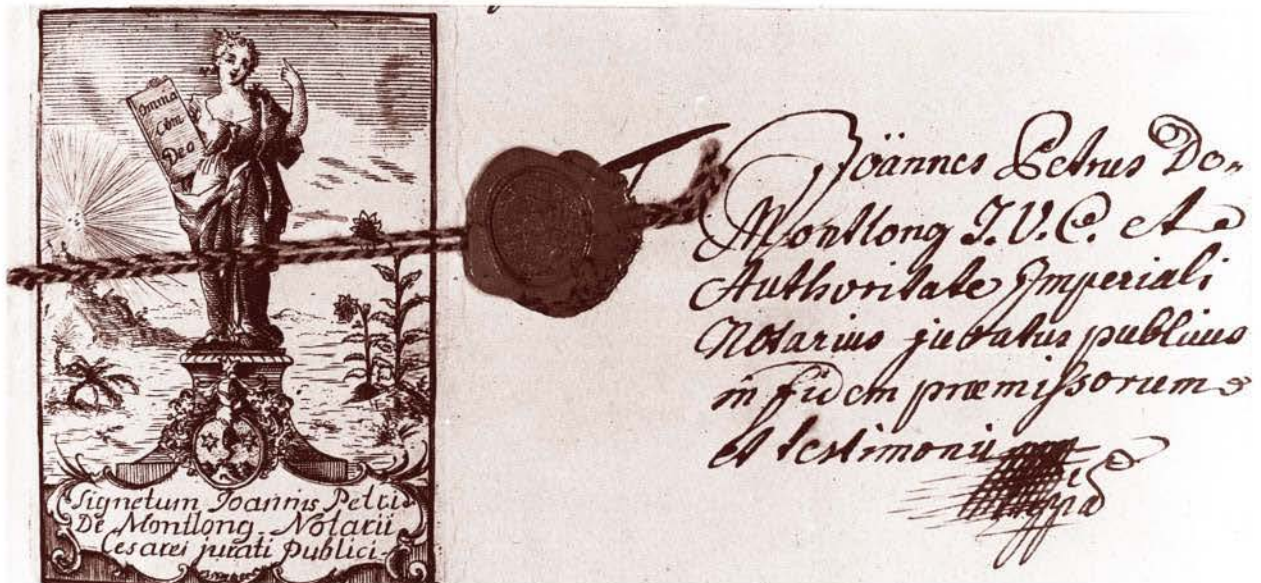 Omnia
Cum
Deo
Signetum Joannis Petri
De Montlong Notarii
Cesarei jurati Publici
Joännes Petrus De
Montlong I.V.C. et
Authoritate Imperiali
Notarius juratus publicus
in fidem præmissorum
et testimonii